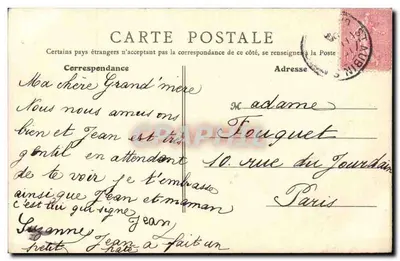 CARTE POSTALE
Certains pays étrangers n'acceptant pas la correspondance de ce côté, se renseigner à la Poste
Correspondance
Adresse
Ma chère Grand'mère
Nous nous amusons
bien et Jean est très
gentil en attendant
de te voir je t'embrasse
ainsi que Jean et maman
c'est lui qui signe
Suzanne Jean
petit Jean a fait un
Madame
Fouquet
10 rue du Jourdain
Paris
CPAPHIL